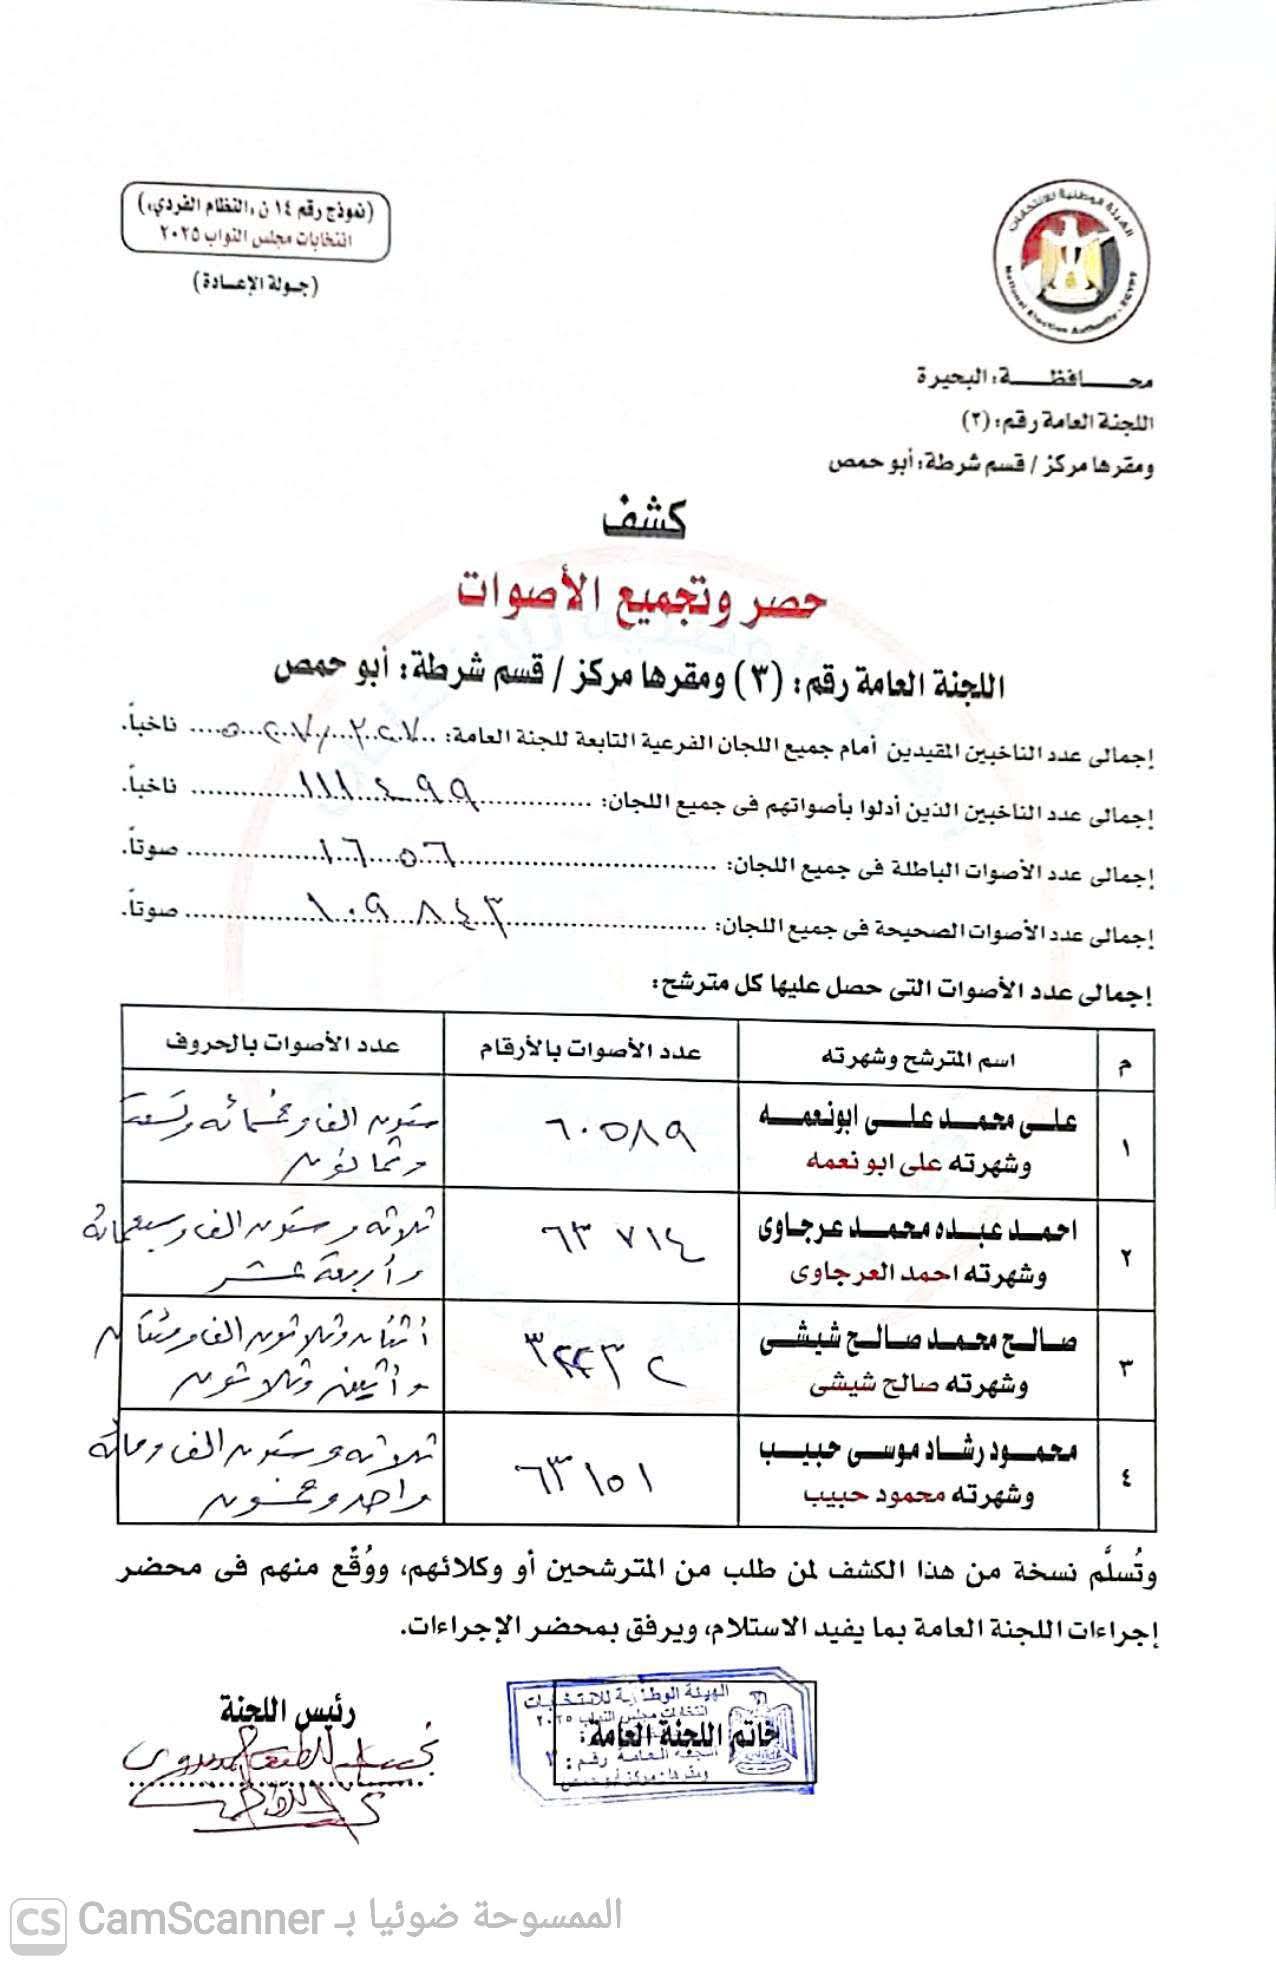 (نموذج رقم ١٤ ن، النظام الفردي،)
انتخابات مجلس النواب ٢٠٢٥
(جولة الإعادة)
الهيئة الوطنية للانتخابات
National Election Authority - EGYPT
محـــافظـــة: البحيرة
اللجنة العامة رقم: (٣)
ومقرها مركز / قسم شرطة: أبو حمص
كشف
حصر وتجميع الأصوات
اللجنة العامة رقم: (٣) ومقرها مركز / قسم شرطة: أبو حمص
إجمالى عدد الناخبين المقيدين أمام جميع اللجان الفرعية التابعة للجنة العامة: ناخباً.
إجمالى عدد الناخبين الذين أدلوا بأصواتهم فى جميع اللجان: ١١١٤٩٩ ناخباً.
إجمالى عدد الأصوات الباطلة فى جميع اللجان: ١٦٥٦ صوتاً.
إجمالى عدد الأصوات الصحيحة فى جميع اللجان: ١٠٩٨٤٣ صوتاً.
إجمالى عدد الأصوات التى حصل عليها كل مترشح:
م اسم المترشح وشهرته عدد الأصوات بالأرقام عدد الأصوات بالحروف
١ علـى محمـد علـى ابونعمـه ٦٠٥٨٩ ستون الف وخمسمائه وتسعة
وشهرته على ابو نعمه وثمانون
٢ احمـد عبـده محمـد عرجاوى ٦٣٧١٤ ثلاثه وستون الف وسبعمائه
وشهرته احمد العرجاوى وأربعة عشر
٣ صالـح محمـد صالـح شيشى ٣٢٢٣٢ أثنان وثلاثون الف ومئتان
وشهرته صالح شيشى وأثنين وثلاثون
٤ محمـود رشاد موسى حبيـب ٦٣١٥١ ثلاثه وستون الف ومائه
وشهرته محمود حبيب واحد وخمسون
وتُسلَّم نسخة من هذا الكشف لمن طلب من المترشحين أو وكلائهم، ووُقِّع منهم فى محضر
إجراءات اللجنة العامة بما يفيد الاستلام، ويرفق بمحضر الإجراءات.
خاتم اللجنة العامة:
الهيئة الوطنية للانتخابات
انتخابات مجلس النواب ٢٠٢٥
اللجنة العامة رقم: ٣
ومقرها: مركز أبو حمص
رئيس اللجنة
CS CamScanner الممسوحة ضوئيا بـ